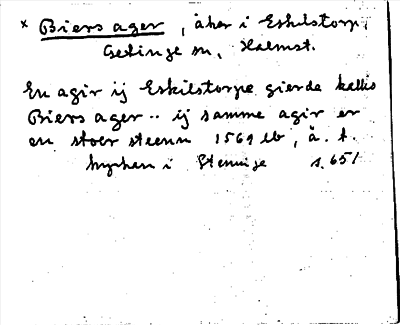 × Biers ager, åker i Eskilstorp,
Getinge sn, Halmst.
En agir ij Eskilstorpe gierde kallis
Biers ager .. ij samme agir er
en stoer steenn 1569 lb, å. t.
kyrkan i Steninge s. 651